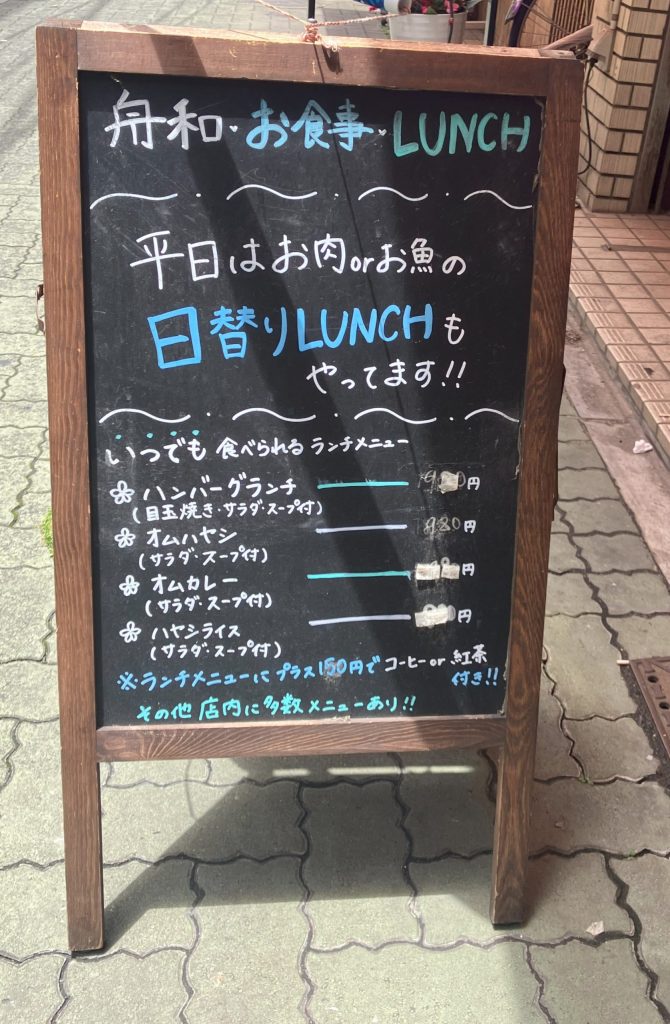 舟和・お食事・LUNCH
平日はお肉orお魚の
日替りLUNCHも
やってます!!
いつでも 食べられる ランチメニュー
ハンバーグランチ 円
(目玉焼き・サラダ・スープ付)
オムハヤシ 980円
(サラダ・スープ付)
オムカレー 円
(サラダ・スープ付)
ハヤシライス 円
(サラダ・スープ付)
※ランチメニューにプラス150円でコーヒーor紅茶
付き!!
その他 店内に多数メニューあり!!